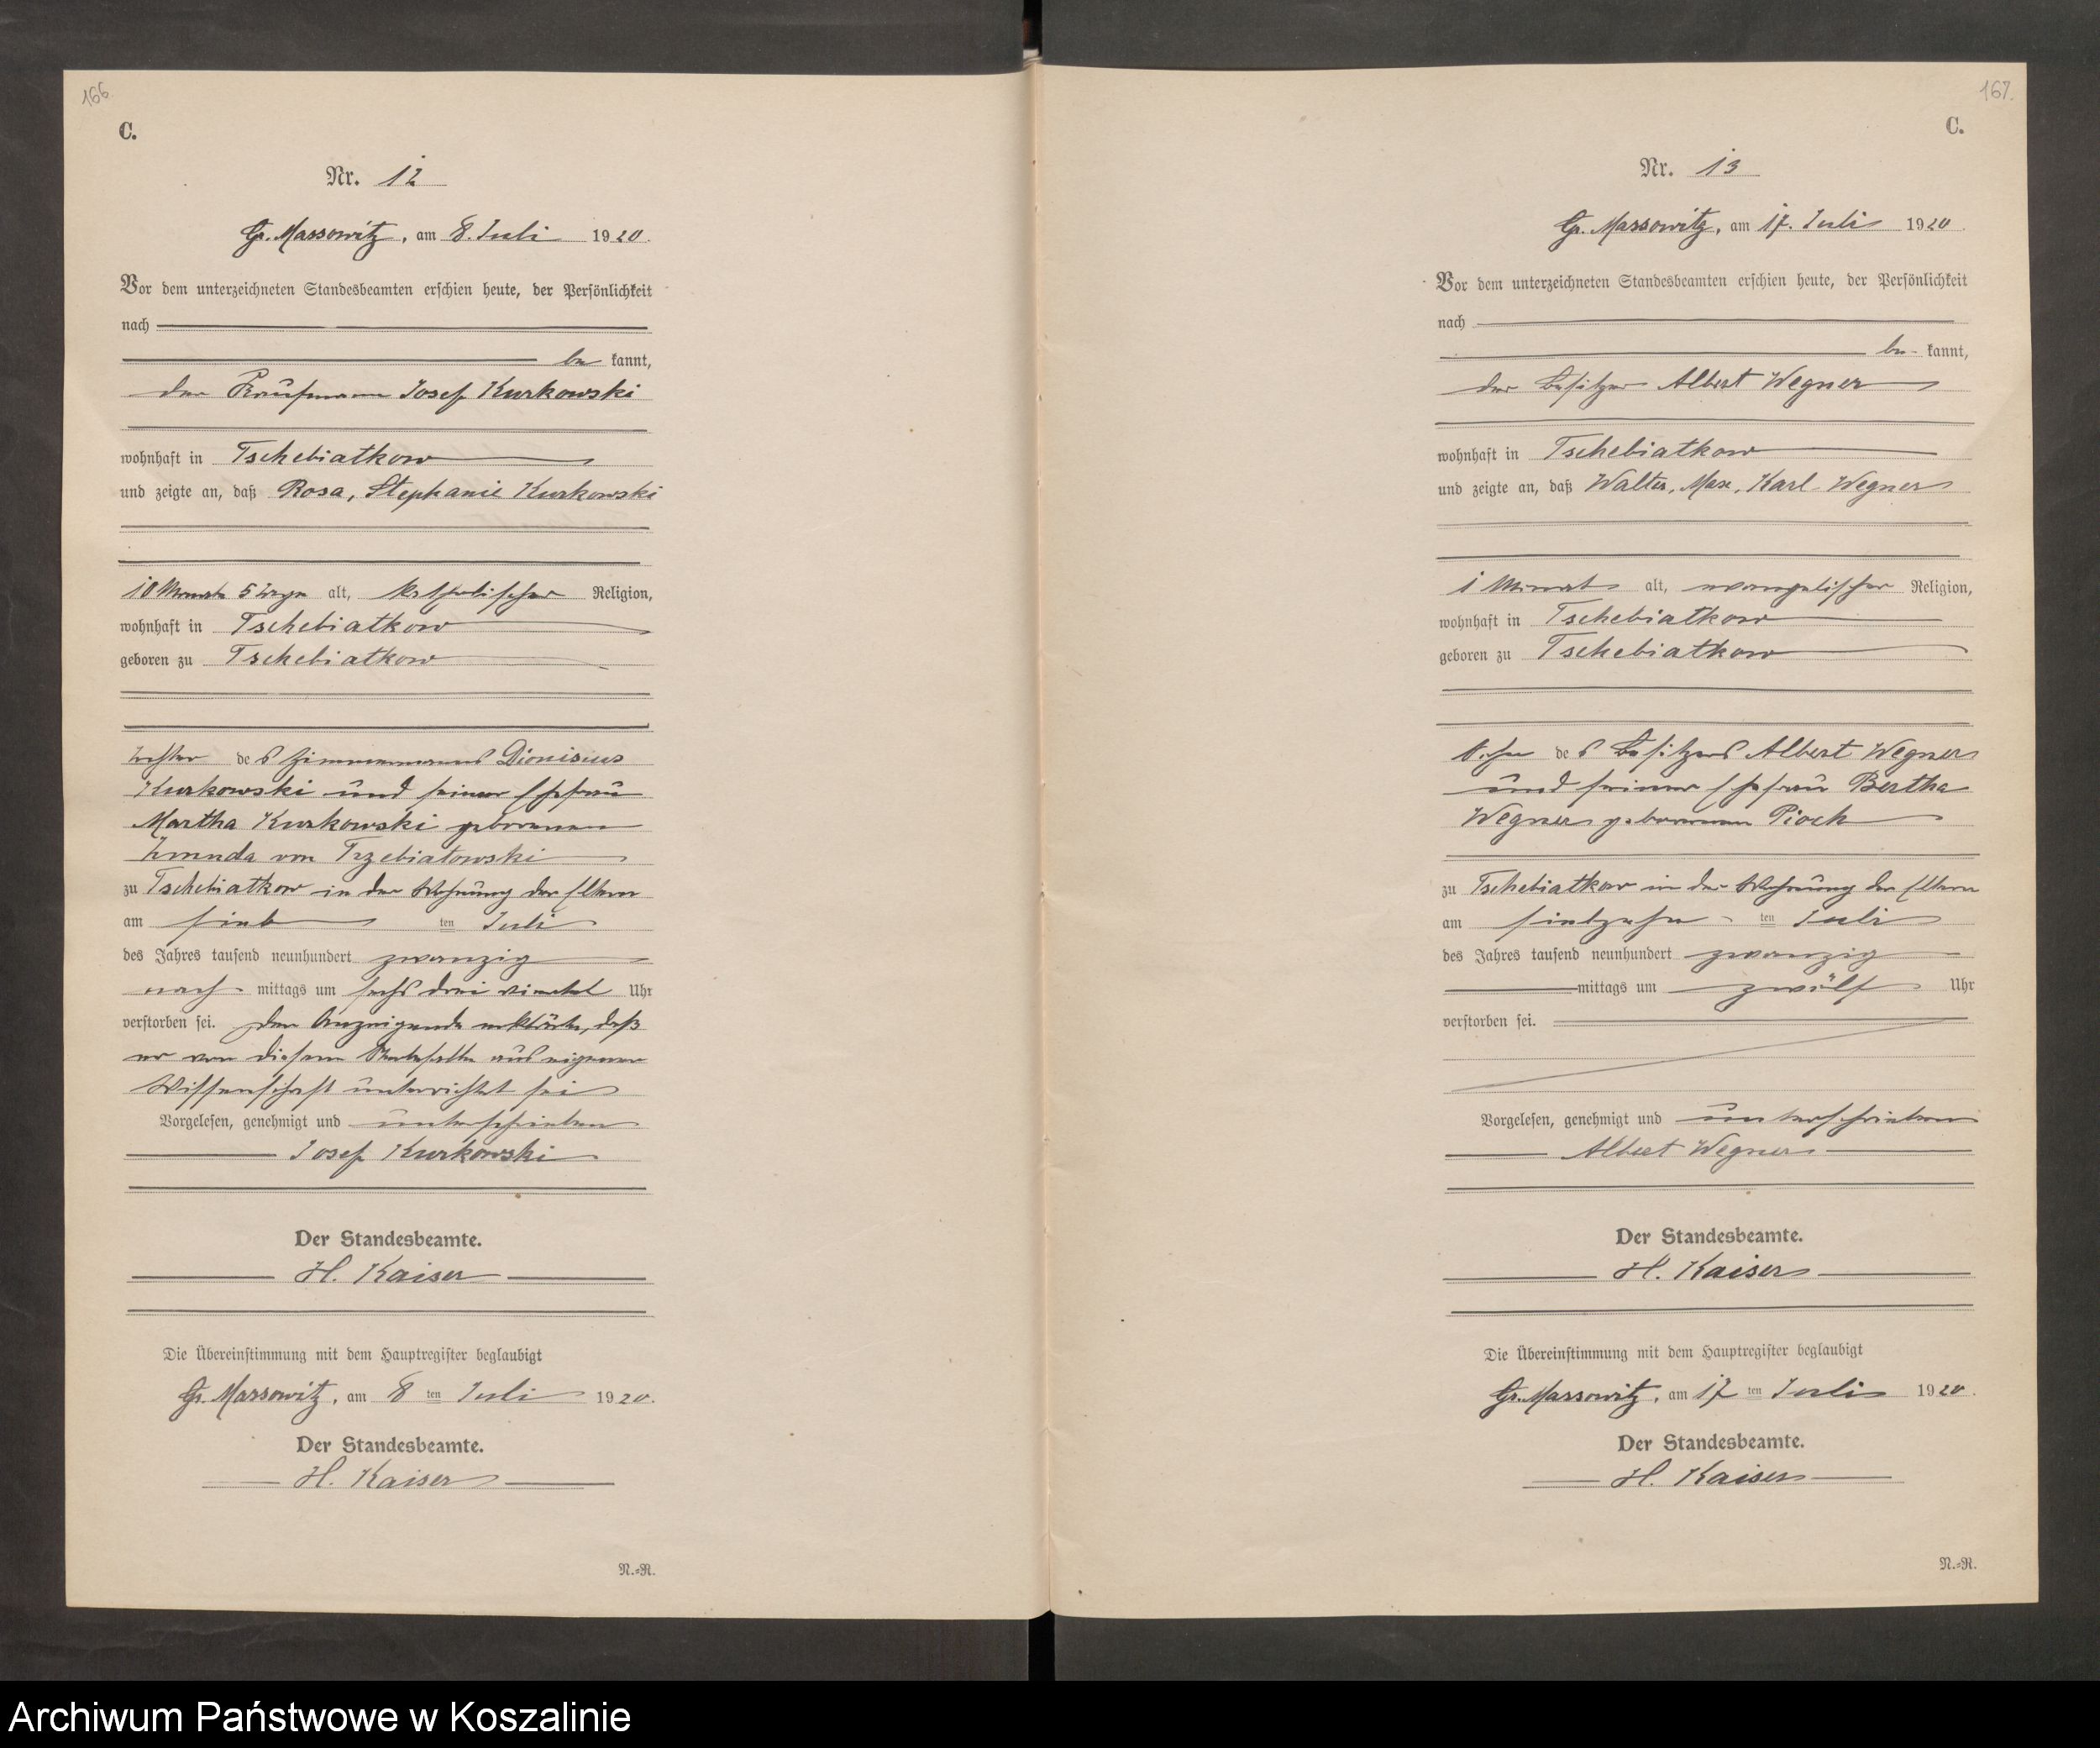 166.
C.
Nr. 12
Gr. Massowitz, am 8. Juli 1920.
Vor dem unterzeichneten Standesbeamten erschien heute, der Persönlichkeit
nach
be kannt,
der Kaufmann Josef Kurkowski
wohnhaft in Tschebiatkow
und zeigte an, daß Rosa, Stephanie Kurkowski
10 Monate 5 Tage alt, katholischer Religion,
wohnhaft in Tschebiatkow
geboren zu Tschebiatkow
Tochter des Zimmermanns Dionisius
Kurkowski und seiner Ehefrau
Martha Kurkowski geborenen
Zmuda von Trzebiatowski
zu Tschebiatkow in der Wohnung der Eltern
am sieb ten Juli
des Jahres tausend neunhundert zwanzig
nach mittags um sechs drei viertel Uhr
verstorben sei. Der Anzeigende erklärte, daß
er von diesem Sterbefalle aus eigener
Wissenschaft unterrichtet sei
Vorgelesen, genehmigt und unterschrieben
Josef Kurkowski
Der Standesbeamte.
H. Kaiser
Die Übereinstimmung mit dem Hauptregister beglaubigt
Gr. Massowitz, am 8 ten Juli 1920.
Der Standesbeamte.
H. Kaiser
N.=R.
167.
C.
Nr. 13
Gr. Massowitz, am 17. Juli 1920.
Vor dem unterzeichneten Standesbeamten erschien heute, der Persönlichkeit
nach
be- kannt,
der Besitzer Albert Wegner
wohnhaft in Tschebiatkow
und zeigte an, daß Walter, Max, Karl Wegner
1 Monat alt, evangelischer Religion,
wohnhaft in Tschebiatkow
geboren zu Tschebiatkow
Sohn des Besitzers Albert Wegner
und seiner Ehefrau Bertha
Wegner geborenen Pioch
zu Tschebiatkow in der Wohnung der Eltern
am siebzehn ten Juli
des Jahres tausend neunhundert zwanzig
mittags um zwölf Uhr
verstorben sei.
Vorgelesen, genehmigt und unterschrieben
Albert Wegner
Der Standesbeamte.
H. Kaiser
Die Übereinstimmung mit dem Hauptregister beglaubigt
Gr. Massowitz, am 17 ten Juli 1920.
Der Standesbeamte.
H. Kaiser
N.=R.
Archiwum Państwowe w Koszalinie